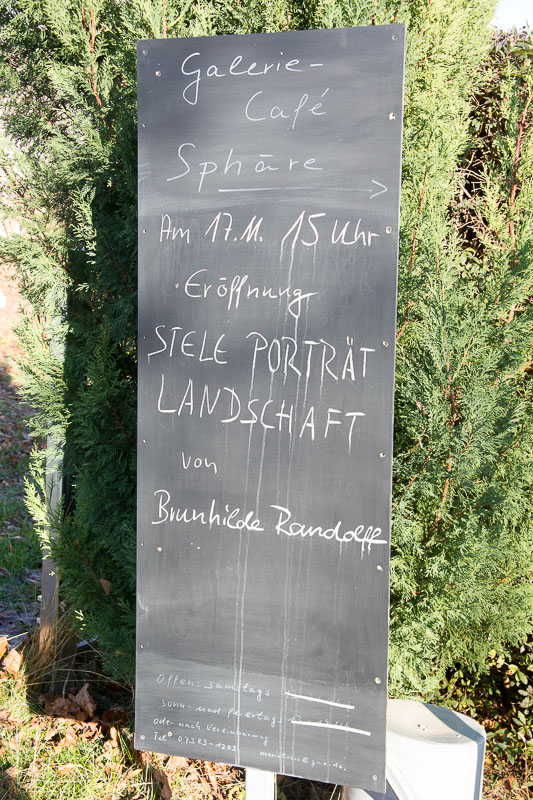 Galerie-
Café
Sphäre
Am 17.11. 15 Uhr
Eröffnung
STELE PORTRÄT
LANDSCHAFT
von
Brunhilde Randolff
Offen: samstags
sonn- und Feiertags
oder nach Vereinbarung
Tel